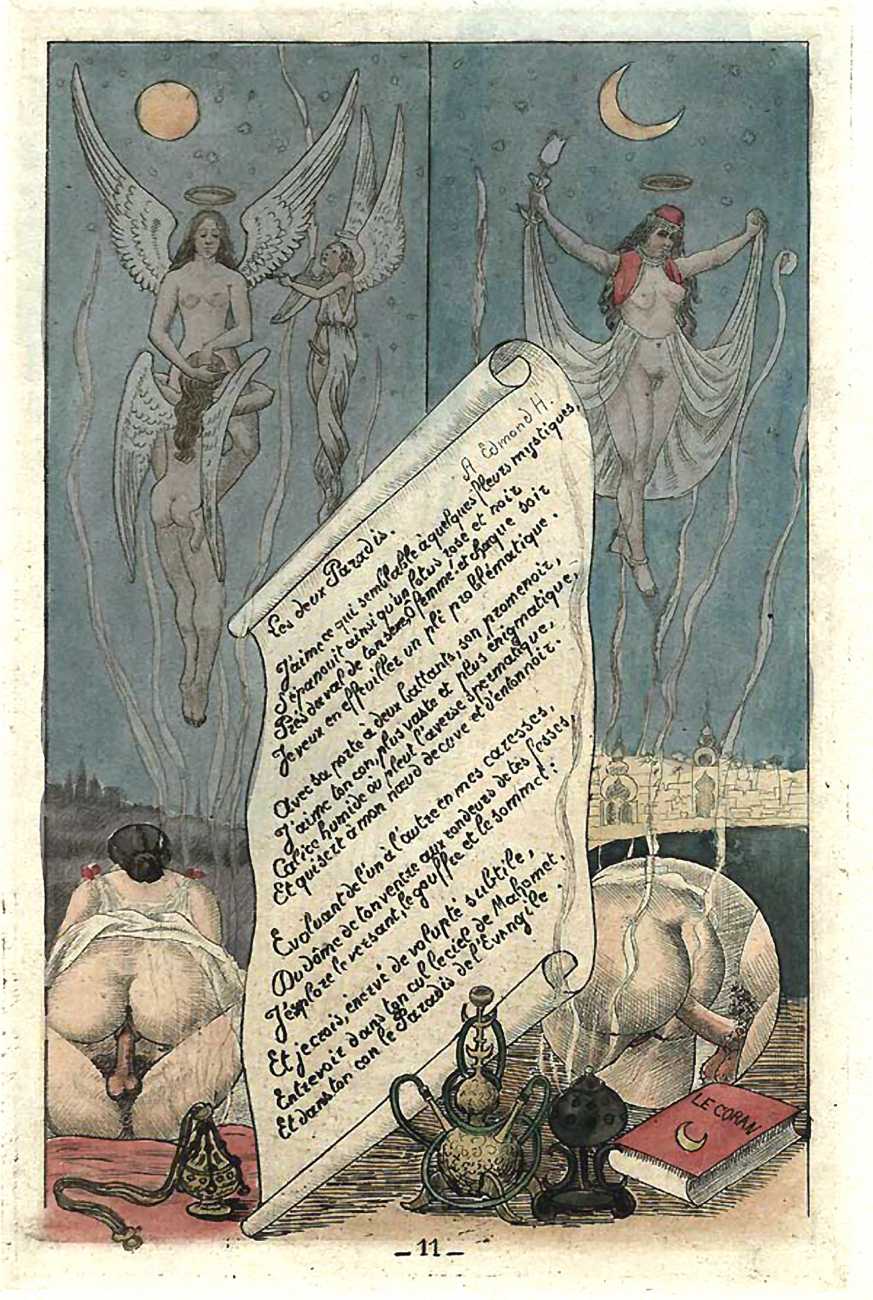 Les deux Paradis.
A Edmond H.
J'aime ce qui semblable à quelques fleurs mystiques,
S'épanouit ainsi qu'un lotus rose et noir
Près du val de ton sère, ô femme! et chaque soir
Je veux en effeuiller un pli problématique.
Avec sa porte à deux battants, son promenoir,
J'aime ton con, plus vaste et plus énigmatique,
Calice humide où pleut l'averse spermatique,
Et qui sert à mon nœud de cuve et d'entonnoir.
Evoluant de l'un à l'autre en mes caresses,
Du dôme de ton ventre aux rondeurs de tes fesses,
J'explore le versant, le gouffre et le sommet:
Et je crois, énervé de volupté subtile,
Entrevoir dans ton cul le ciel de Mahomet,
Et dans ton con le Paradis de l'Evangile.
LE CORAN
- 11 -